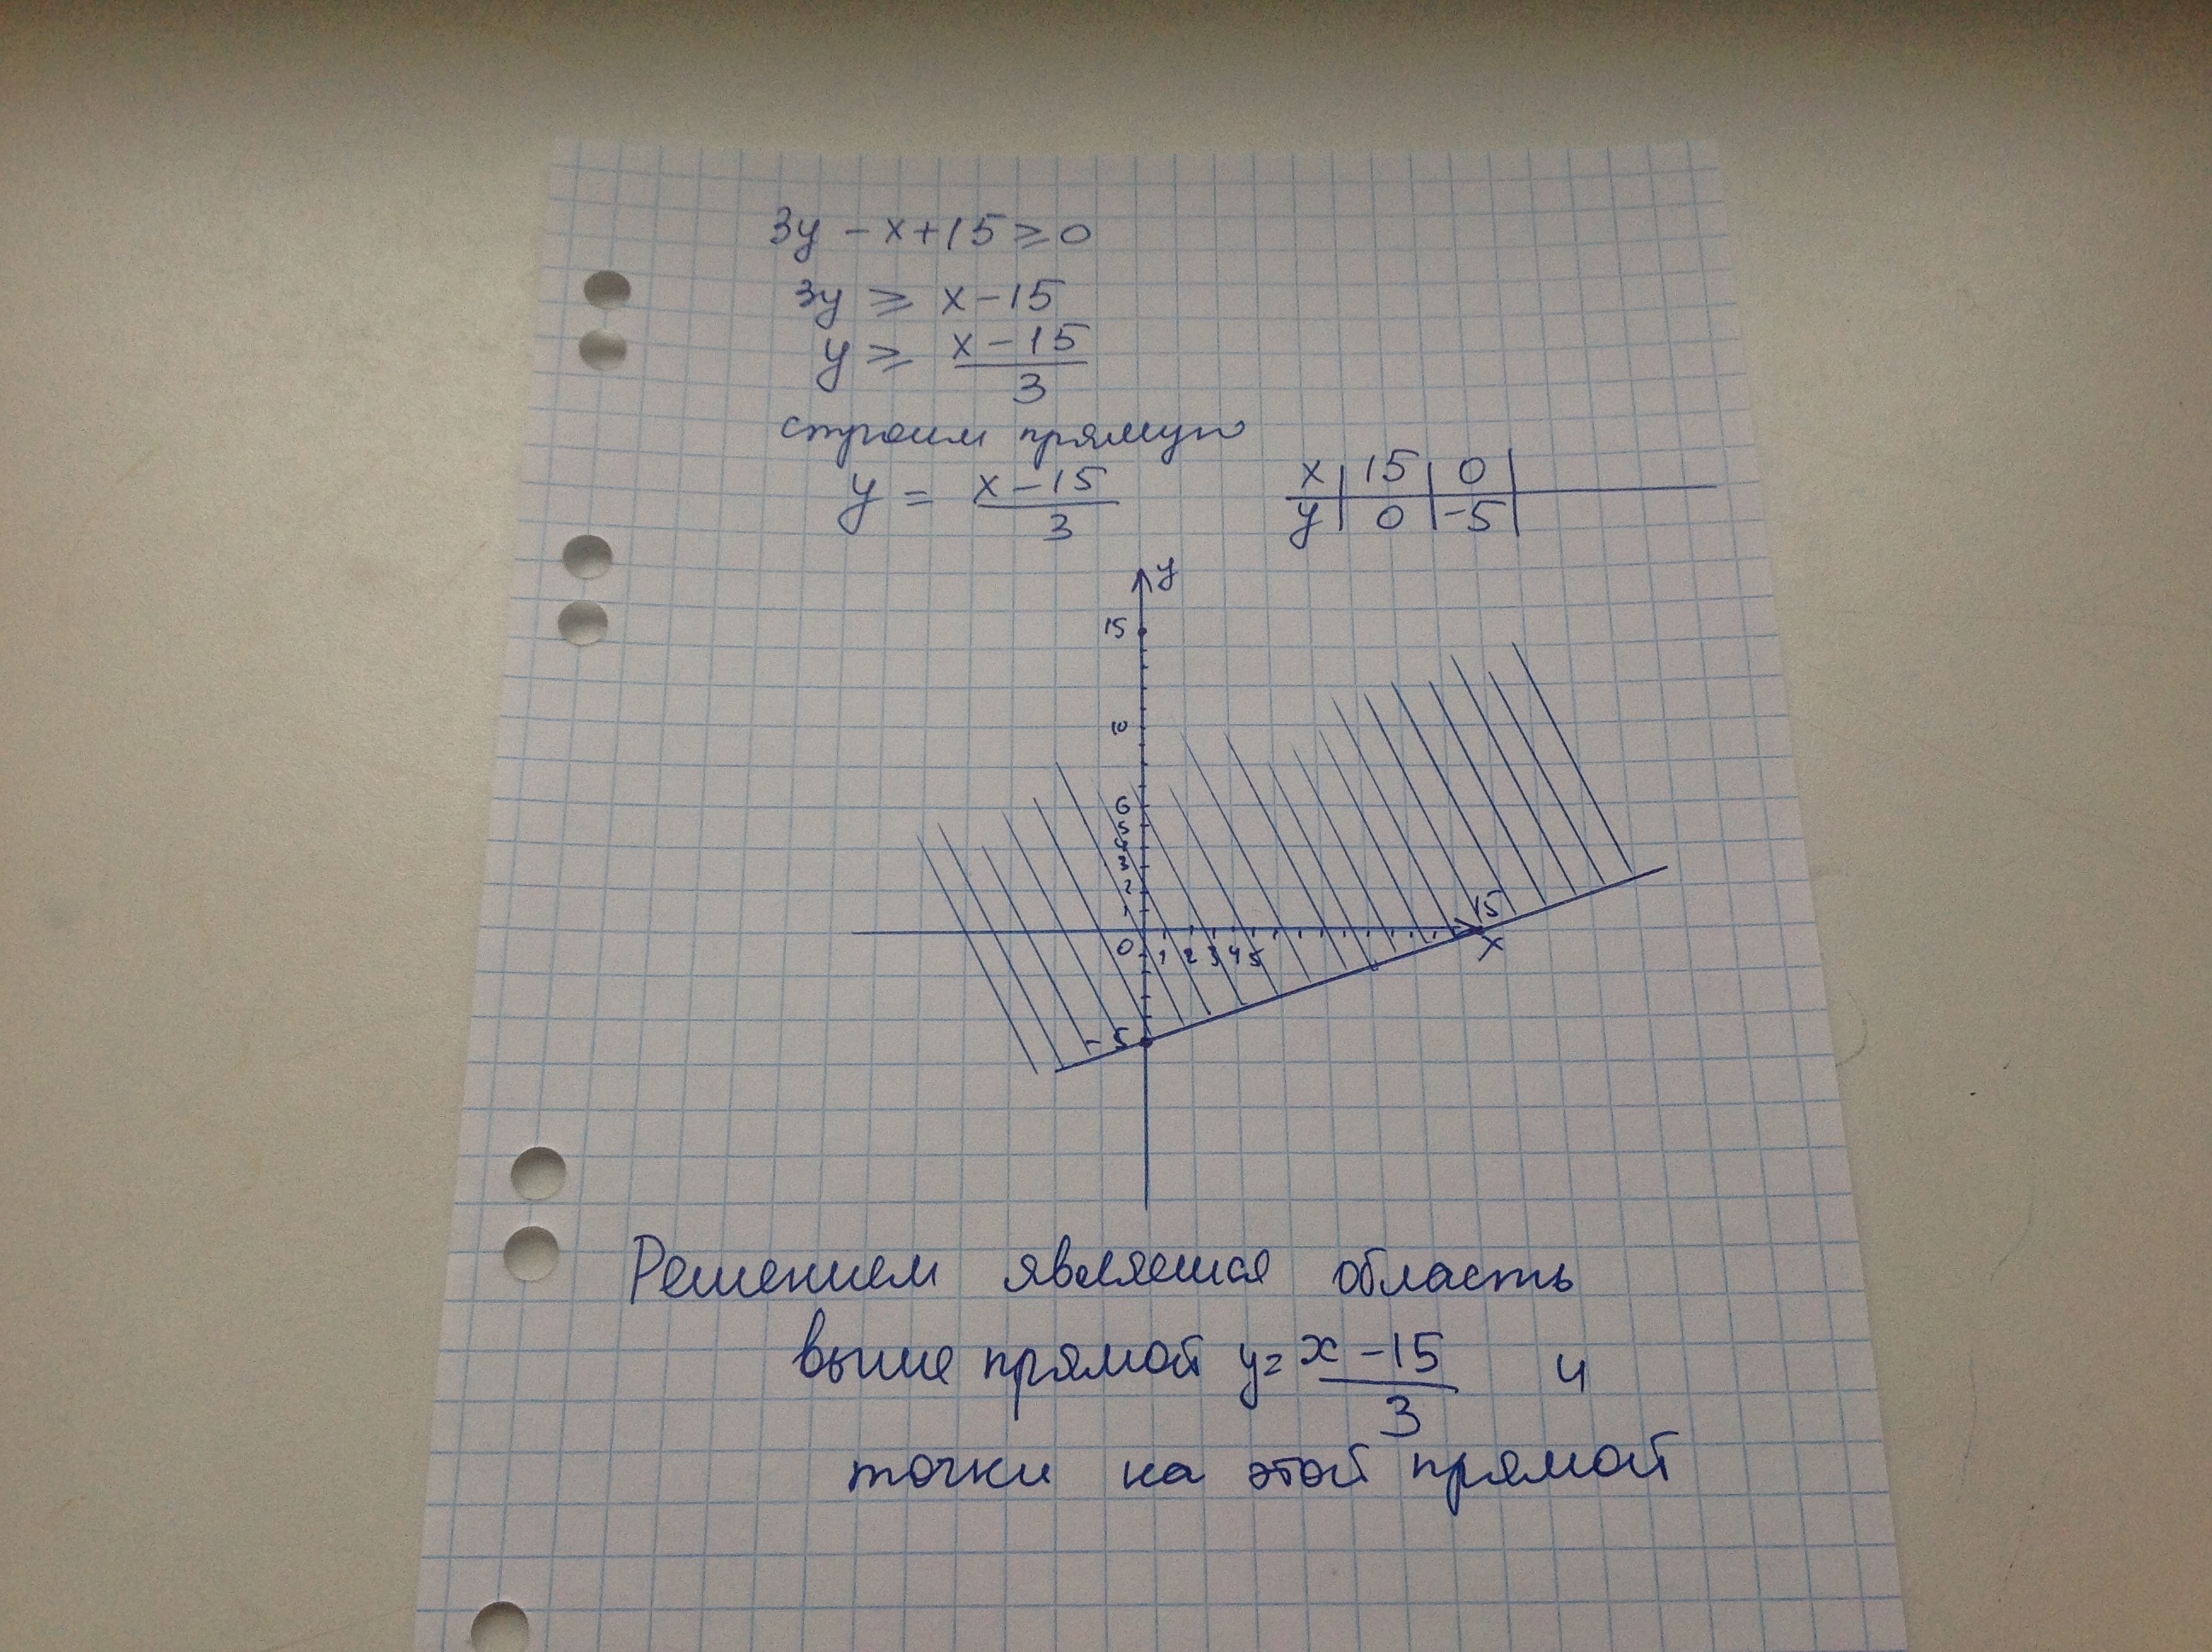 3y - x + 15 ≥ 0
3y ≥ x - 15
y ≥ x - 15
3
строим прямую
y = x - 15
3
x | 15 | 0 |
y | 0 | -5 |
y
15
10
6
5
4
3
2
1
0 1 2 3 4 5
15
x
-5
Решением является область
выше прямой y = x - 15 и
3
точки на этой прямой